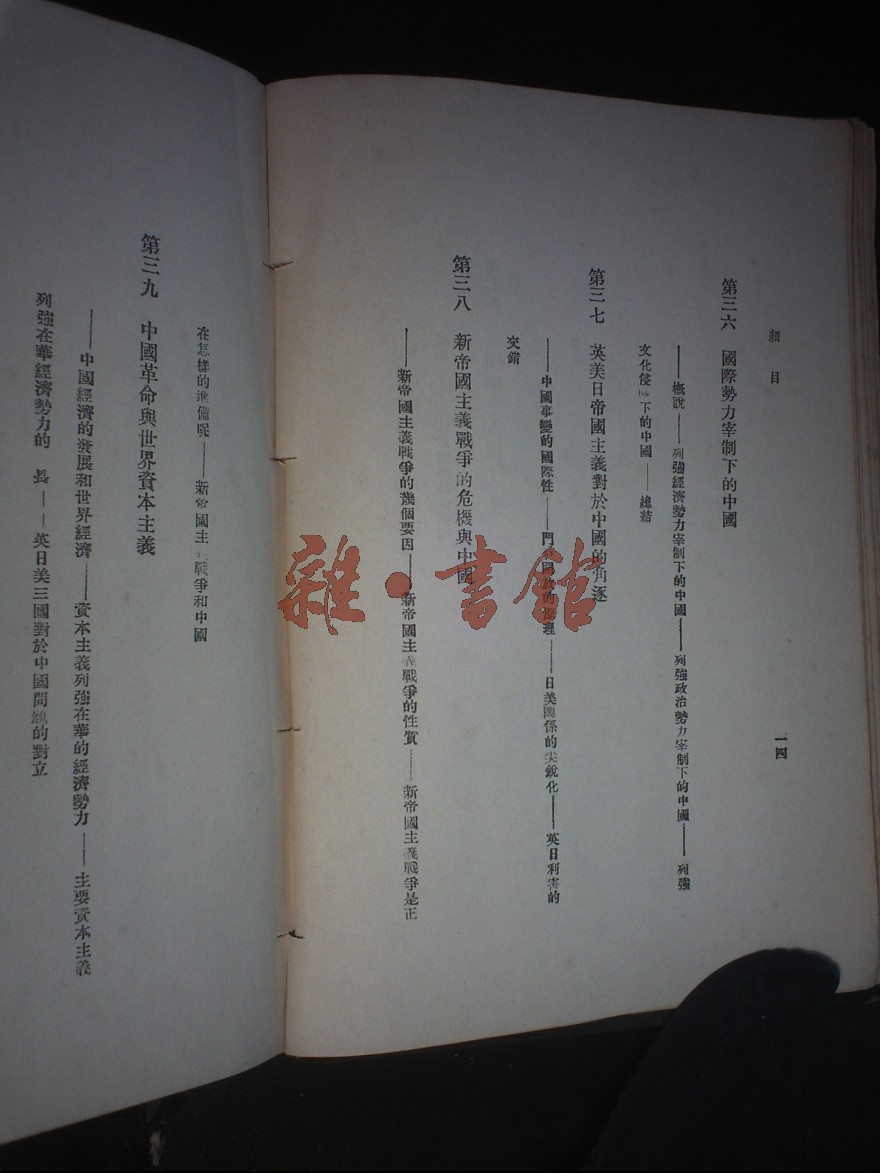 細目
一四
第三六 國際勢力宰制下的中國
——概說——列強經濟勢力宰制下的中國——列強政治勢力宰制下的中國——列強
文化侵 下的中國——總結
第三七 英美日帝國主義對於中國的角逐
——中國事變的國際性——門 開放的 理——日美關係的尖銳化——英日利害的
交錯
第三八 新帝國主義戰爭的危機與中國
——新帝國主義戰爭的幾個要因——新帝國主義戰爭的性質——新帝國主義戰爭是正
在怎樣的準備呢——新帝國主 戰爭和中國
第三九 中國革命與世界資本主義
——中國經濟的發展和世界經濟——資本主義列強在華的經濟勢力——主要資本主義
列強在華經濟勢力的 長——英日美三國對於中國問題的對立
雜·書館